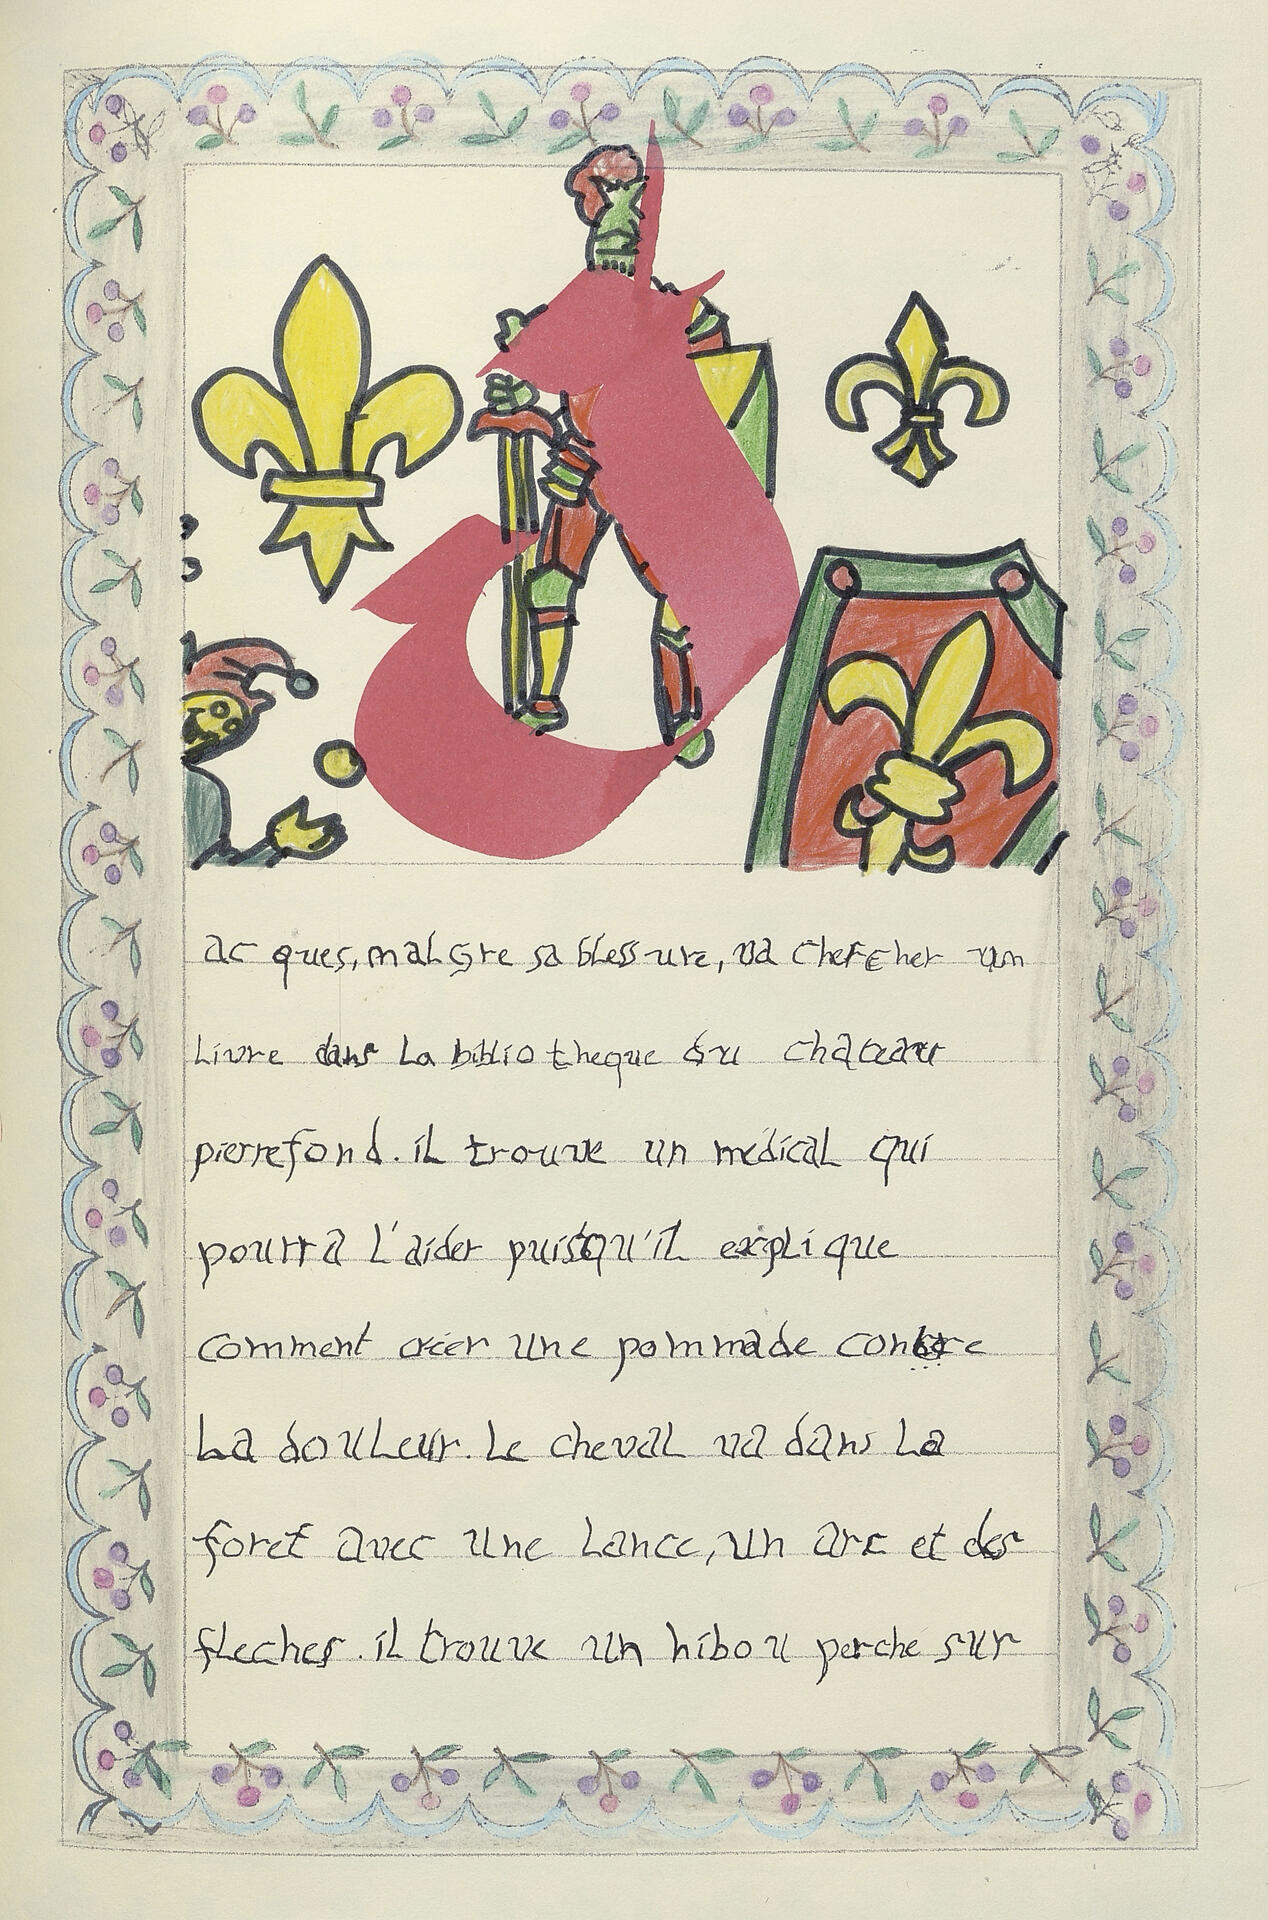 J
acques, malgre sa blessure, va chercher un
livre dans la bibliotheque du chateau
pierrefond. il trouve un médical qui
pourra l'aider puisqu'il explique
comment créer une pommade contre
la douleur. Le cheval va dans la
foret avec une lance, un arc et des
fleches. il trouve un hibou perché sur